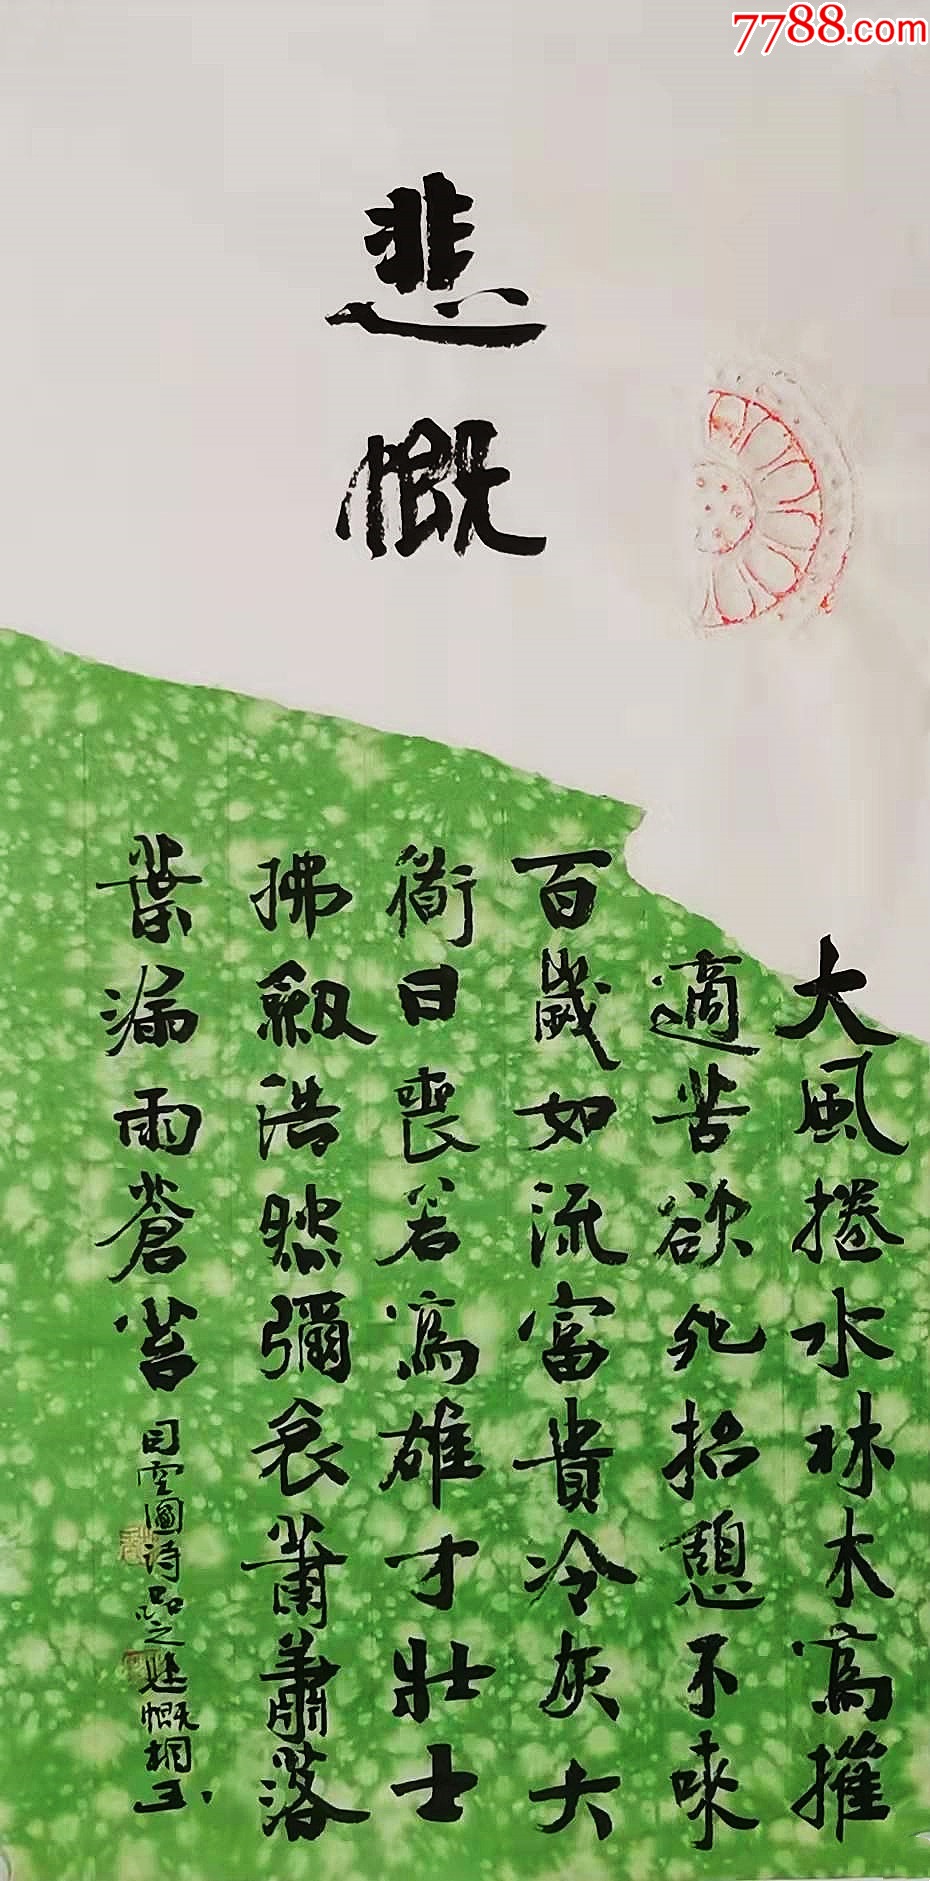 7788.com
悲
慨
大風捲水林木為摧
適苦欲死招憩不來
百歲如流富貴冷灰大
衟日喪若為雄才壯士
拂劔浩然彌哀蕭蕭落
葉漏雨蒼苔
司空圖詩品之悲慨